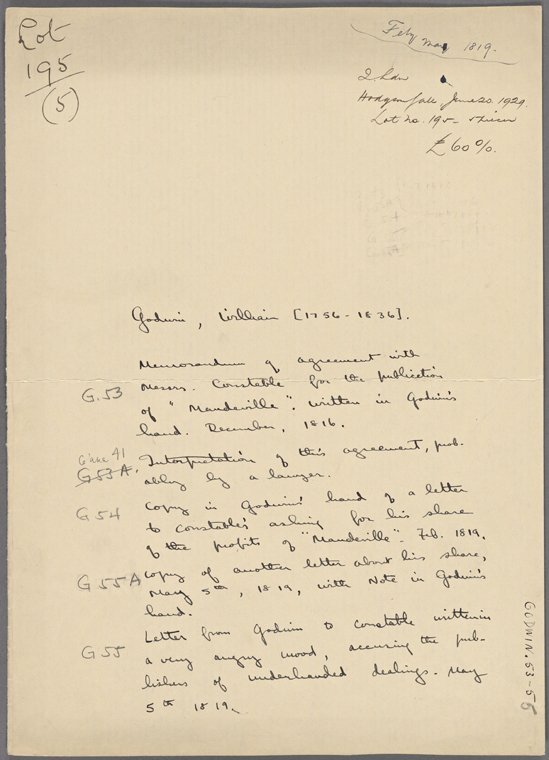 Lot
195
(5)
Feby May 1819.
Hodgson Sale June 20. 1929.
Lot No. 195 -
£60 %.
Godwin, William [1756-1836].
Memorandum of agreement with
G.53 Messrs. Constable for the publication
of "Mandeville". Written in Godwin's
hand. December, 1816.
G'ana 41
G53A. Interpretation of this agreement, prob-
ably by a lawyer.
G54 Copy in Godwin's hand of a letter
to Constable's asking for his share
of the profits of "Mandeville". Feb. 1819.
G55A Copy of another letter about his share,
May 5th, 1819, with Note in Godwin's
hand.
G55 Letter from Godwin to Constable written in
a very angry mood, accusing the pub-
lishers of underhanded dealings. May
5th 1819.
GODWIN. 53-55